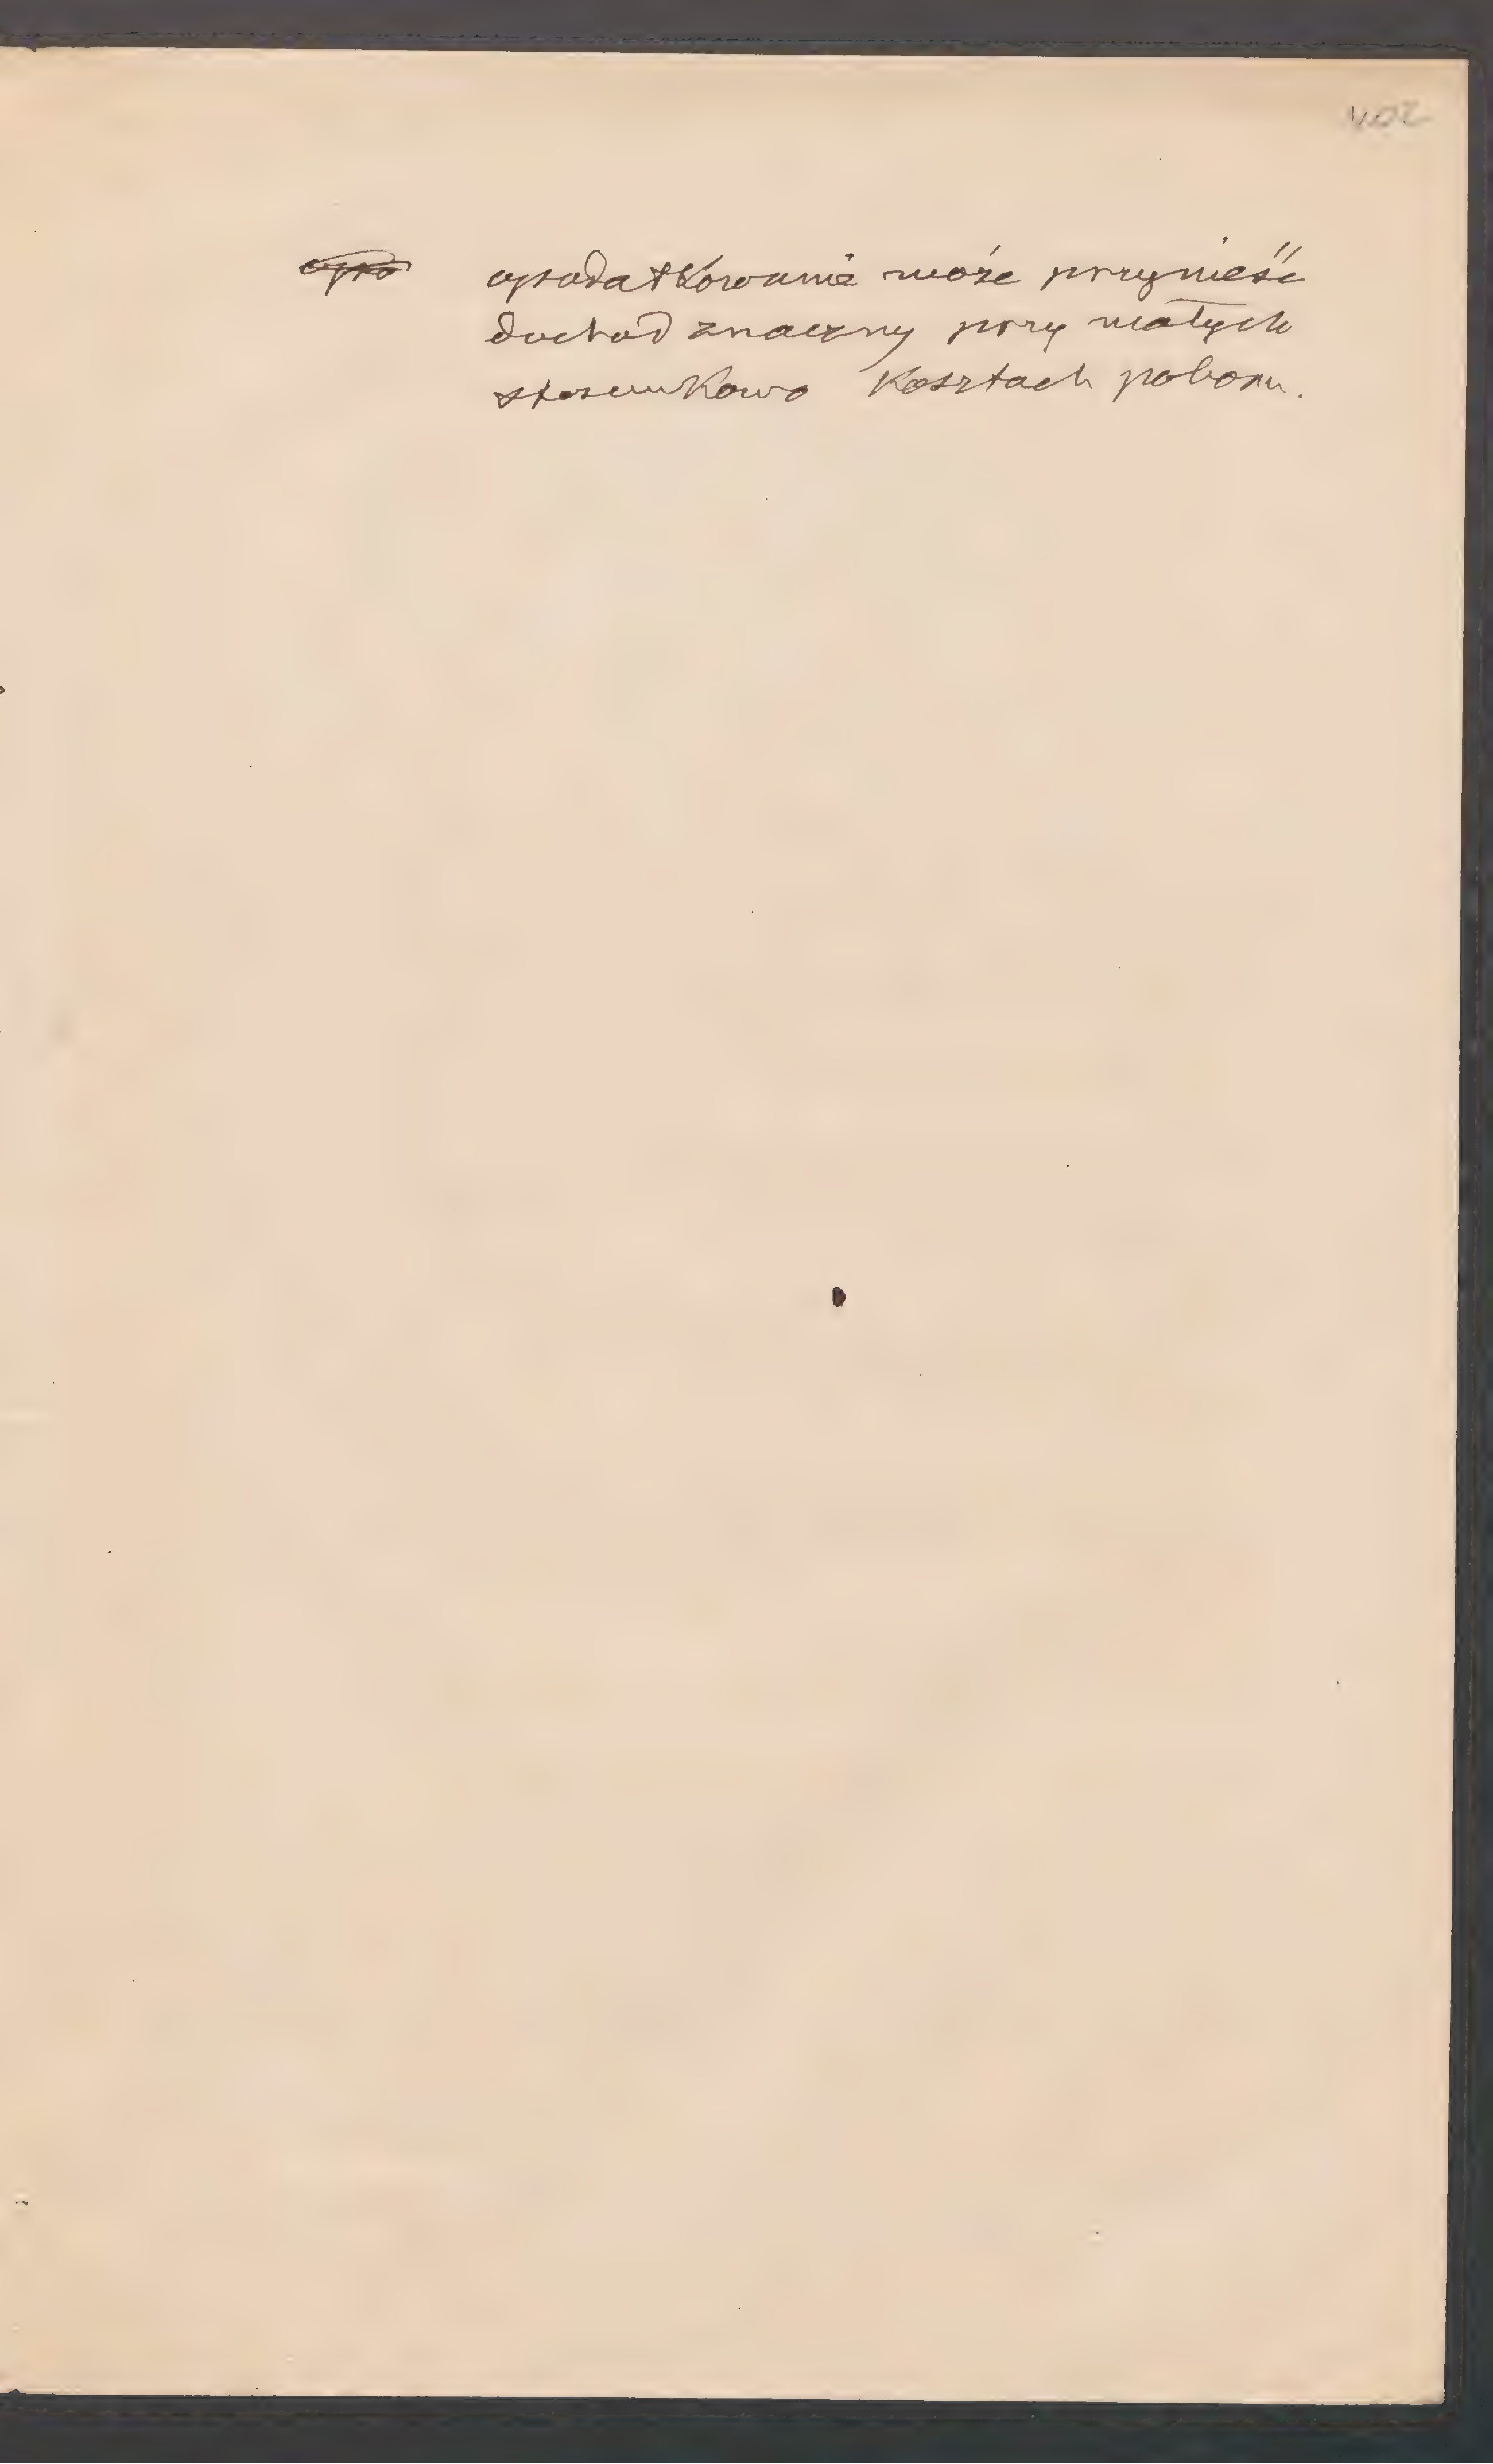 402
opodatkowanie może przynieść
dochod znaczny przy małych
stosunkowo kosztach poboru.